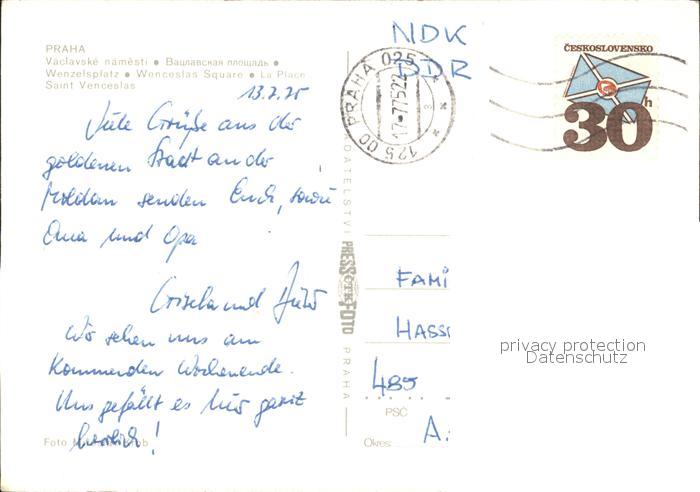 PRAHA
Václavské náměstí • Вацлавская площадь •
Wenzelsplatz • Wenceslas Square • La Place
Saint Venceslas
13.7.75
Gute Grüße aus der
goldenen Stadt an der
Moldau senden Euch, sowie
Oma und Opa
Gisela und
Wir sehen uns am
kommenden Wochenende.
Uns gefällt es hier ganz
herrlich!
Foto
NDK
DDR
PRAHA 025
125 00 PRAHA
ČESKOSLOVENSKO
30h
PRESSFOTO
PRAHA
FAMI
HASS
485
PSČ
A.
Okres:
privacy protection
Datenschutz